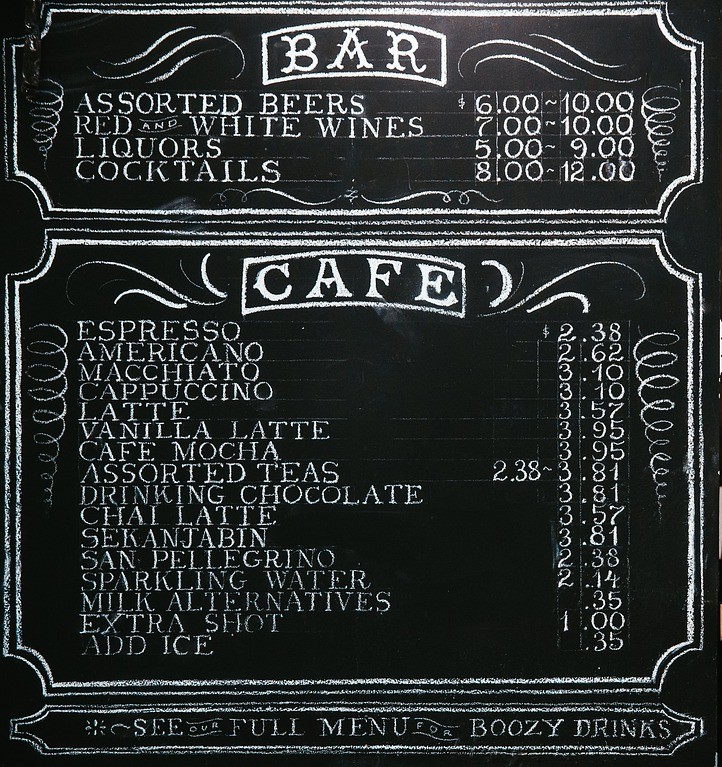 BAR
ASSORTED BEERS $ 6.00~10.00
RED AND WHITE WINES 7.00~10.00
LIQUORS 5.00~ 9.00
COCKTAILS 8.00~12.00
CAFE
ESPRESSO $ 2.38
AMERICANO 2.62
MACCHIATO 3.10
CAPPUCCINO 3.10
LATTE 3.57
VANILLA LATTE 3.95
CAFE MOCHA 3.95
ASSORTED TEAS 2.38~3.81
DRINKING CHOCOLATE 3.81
CHAI LATTE 3.57
SEKANJABIN 3.81
SAN PELLEGRINO 2.38
SPARKLING WATER 2.14
MILK ALTERNATIVES .35
EXTRA SHOT 1.00
ADD ICE .35
SEE OUR FULL MENU FOR BOOZY DRINKS